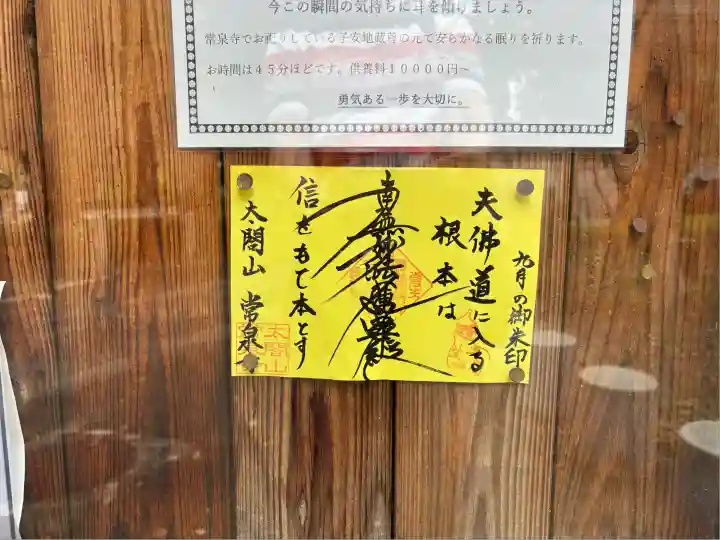 今この瞬間の気持ちに耳を傾りましょう。
常泉寺でお祀りしている子安地蔵尊の元で安らかなる眠りを祈ります。
お時間は45分ほどです。供養料10000円～
勇気ある一歩を大切に。
九月の御朱印
夫佛道に入る
根本は
南無妙法蓮華経
信をもて本とす
太閤山 常泉寺
太閤山